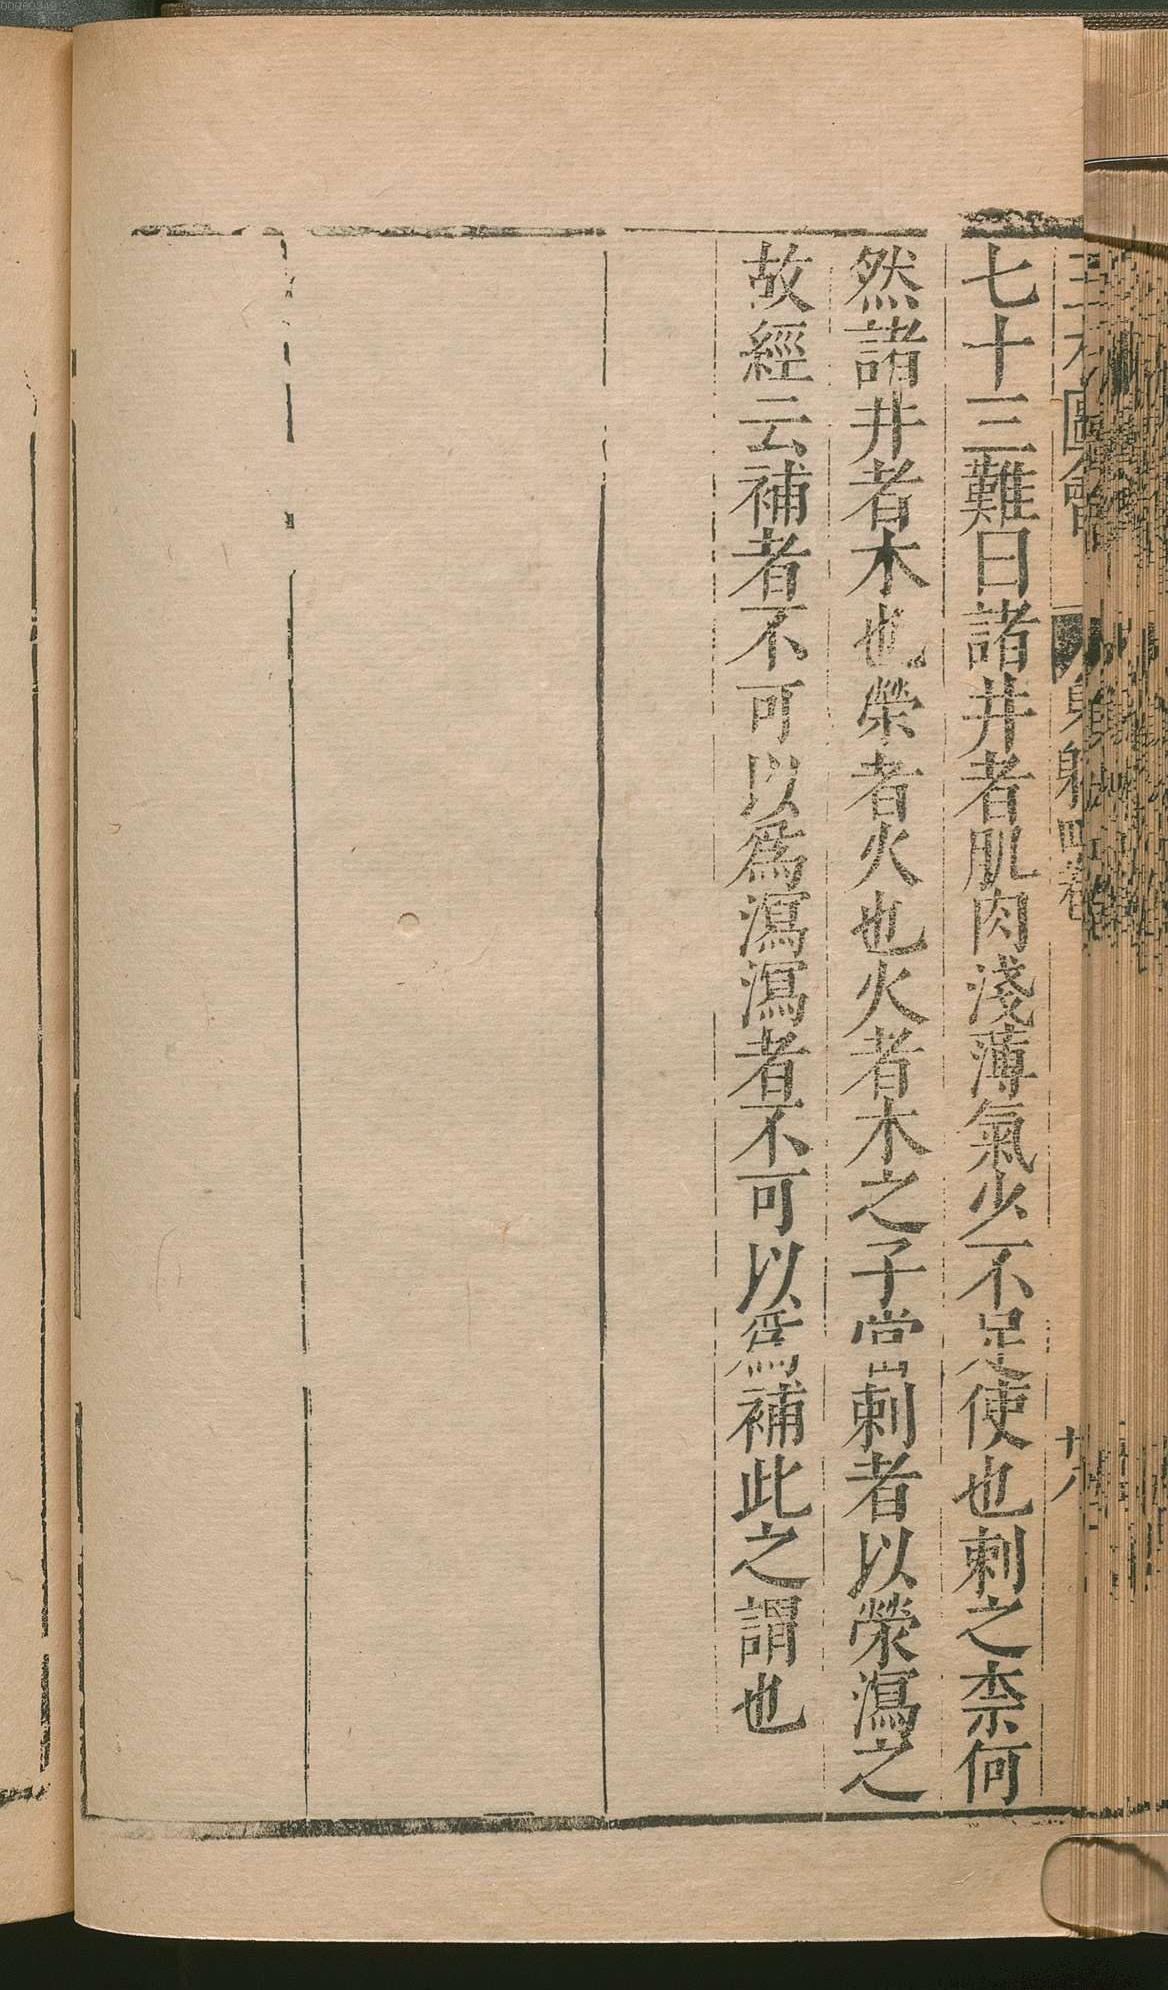 三才圖會 身體四卷 廿八
七十三難曰諸井者肌肉淺薄氣少不足使也刺之柰何
然諸井者木也榮者火也火者木之子當刺者以榮瀉之
故經云補者不可以爲瀉瀉者不可以爲補此之謂也